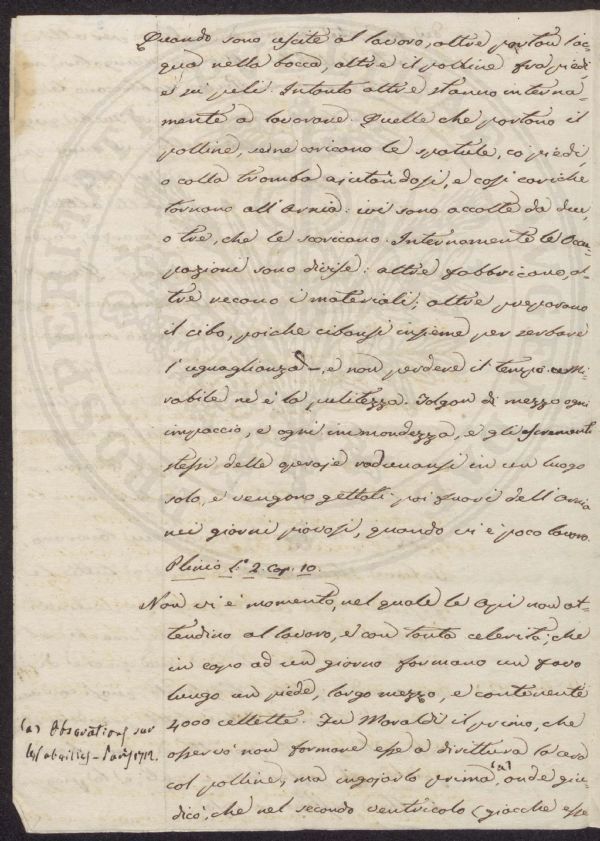 Quando sono uscite al lavoro, altre portan l'ac=
qua nella bocca, altre il polline fra piedi
e sui peli. Intanto altre stanno interna=
mente a lavorare. Quelle che portano il
polline, se ne caricano le spatule, co' piedi,
o colla tromba ajutandosi, e così cariche
tornano all'Arnia: ivi sono accolte da due,
o tre, che le scaricano. Internamente le Occu=
pazioni sono divise: altre fabbricano, al=
tre recano i materiali; altre preparano
il cibo, poiche cibansi insieme per serbare
l'uguaglianza, e non perdere il tempo. Mi=
rabile ne è la pulitezza. Tolgon di mezzo ogni
impaccio, e ogni immondezza, e gli escrementi
stessi delle operaje radunansi in un luogo
solo, e vengono gettati poi fuori dell'Arnia
nei giorni piovosi, quando vi è poco lavoro.
Plinio L.° 2. Cap. 10.
Non vi è momento, nel quale le Api non at=
tendino al lavoro, e con tanta celerità, che
in capo ad un giorno formano un favo
lungo un piede, largo mezzo, e contenente
4000 cellette. Fu Maraldi il primo, che
osservò non formare esse a dirittura la cera
col polline, ma ingojarlo prima (a), onde giu=
dicò, che nel secondo ventricolo (giacche esse
(a) Observations sur
les abeilles - Paris 1712.